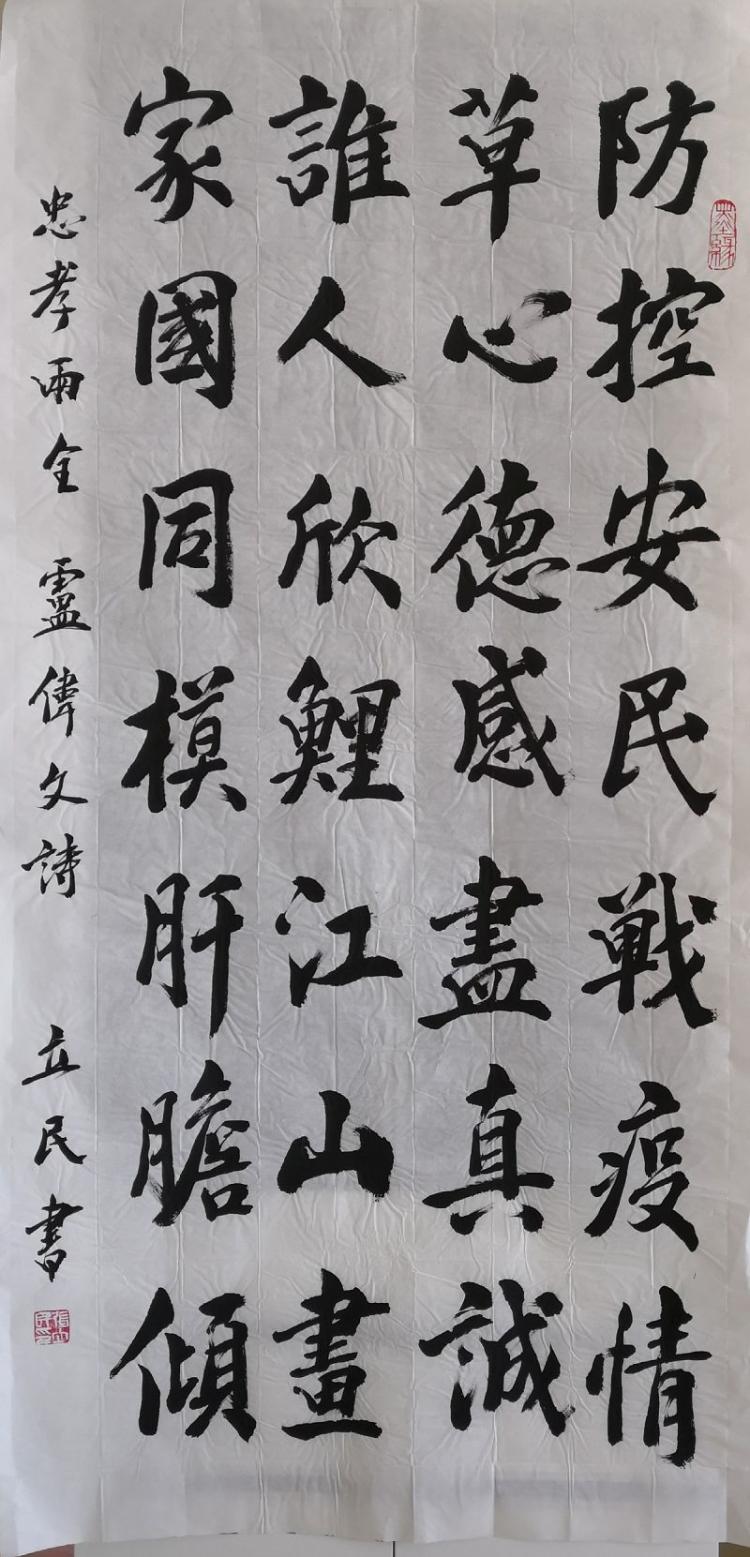 防控安民戰疫情
草心德感盡真誠
誰人欣鯉江山畫
家國同模肝膽傾
忠孝兩全 盧偉文詩 立民書